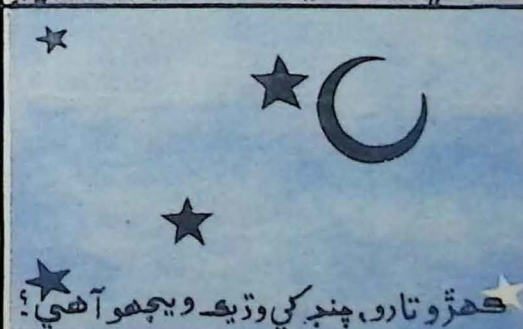 ڪهڙو تارو، چنڊ کي وڌيڪ ويجھو آهي؟